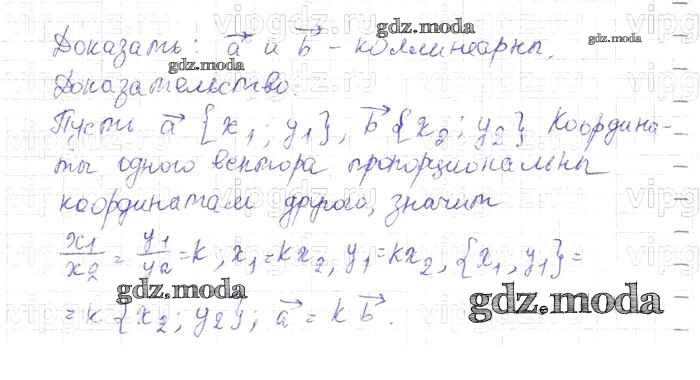 gdz.moda
Доказать: a⃗ и b⃗ - коллинеарны.
gdz.moda
gdz.moda
Доказательство.
Пусть a⃗ {x₁; y₁}, b⃗ {x₂; y₂} Координа-
ты одного вектора пропорциональны
координатам другого, значит
x₁/x₂ = y₁/y₂ = k, x₁ = kx₂, y₁ = kx₂, {x₁, y₁} =
gdz.moda
= k {x₂; y₂}; a⃗ = k b⃗.
gdz.moda